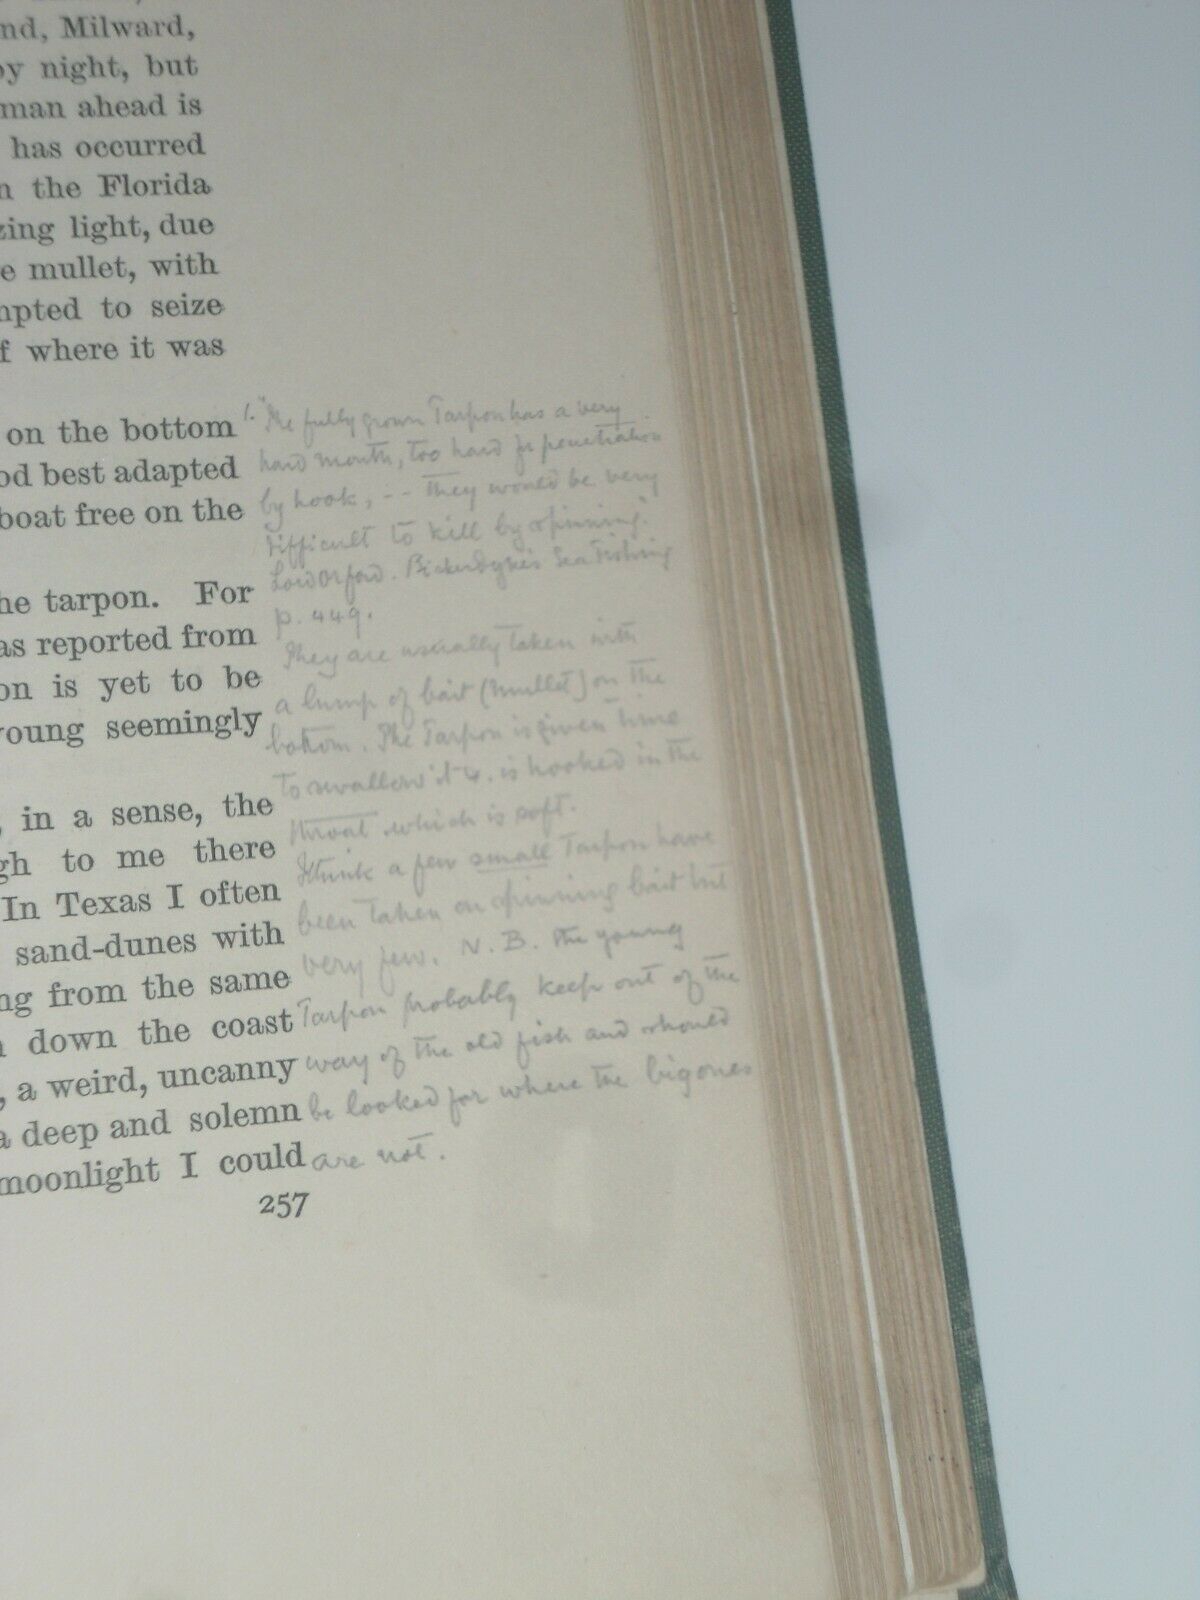 nd, Milward,
by night, but
man ahead is
has occurred
n the Florida
zing light, due
e mullet, with
mpted to seize
f where it was
on the bottom
od best adapted
boat free on the
he tarpon. For
as reported from
on is yet to be
young seemingly
, in a sense, the
gh to me there
In Texas I often
sand-dunes with
ng from the same
n down the coast
, a weird, uncanny
a deep and solemn
moonlight I could
257
1. "The fully grown Tarpon has a very
hard mouth, too hard for penetration
by hook, -- They would be very
difficult to kill by spinning."
Lord Orford. Bickerdyke's Sea Fishing
p. 449.
They are usually taken with
a lump of bait (mullet) on the
bottom. The Tarpon is given time
to swallow it & is hooked in the
throat which is soft.
I think a few small Tarpon have
been taken on spinning bait but
very few. N.B. the young
Tarpon probably keep out of the
way of the old fish and should
be looked for where the big ones
are not.